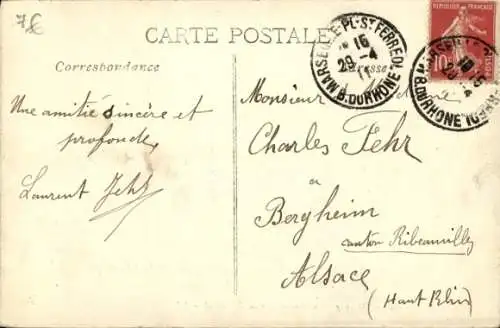 7€
CARTE POSTALE
Correspondance
Adresse
Une amitié sincère et
profonde
Laurent Fehr
Monsieur
Charles Fehr
à
Bergheim
canton Ribeauvillé
Alsace
(Haut Rhin)
MARSEILLE-PL-ST FERREOL
16
29-4
11
B. DU RHONE
REPUBLIQUE FRANÇAISE
10
MARSEILLE
16
29-4
B. DU RHONE